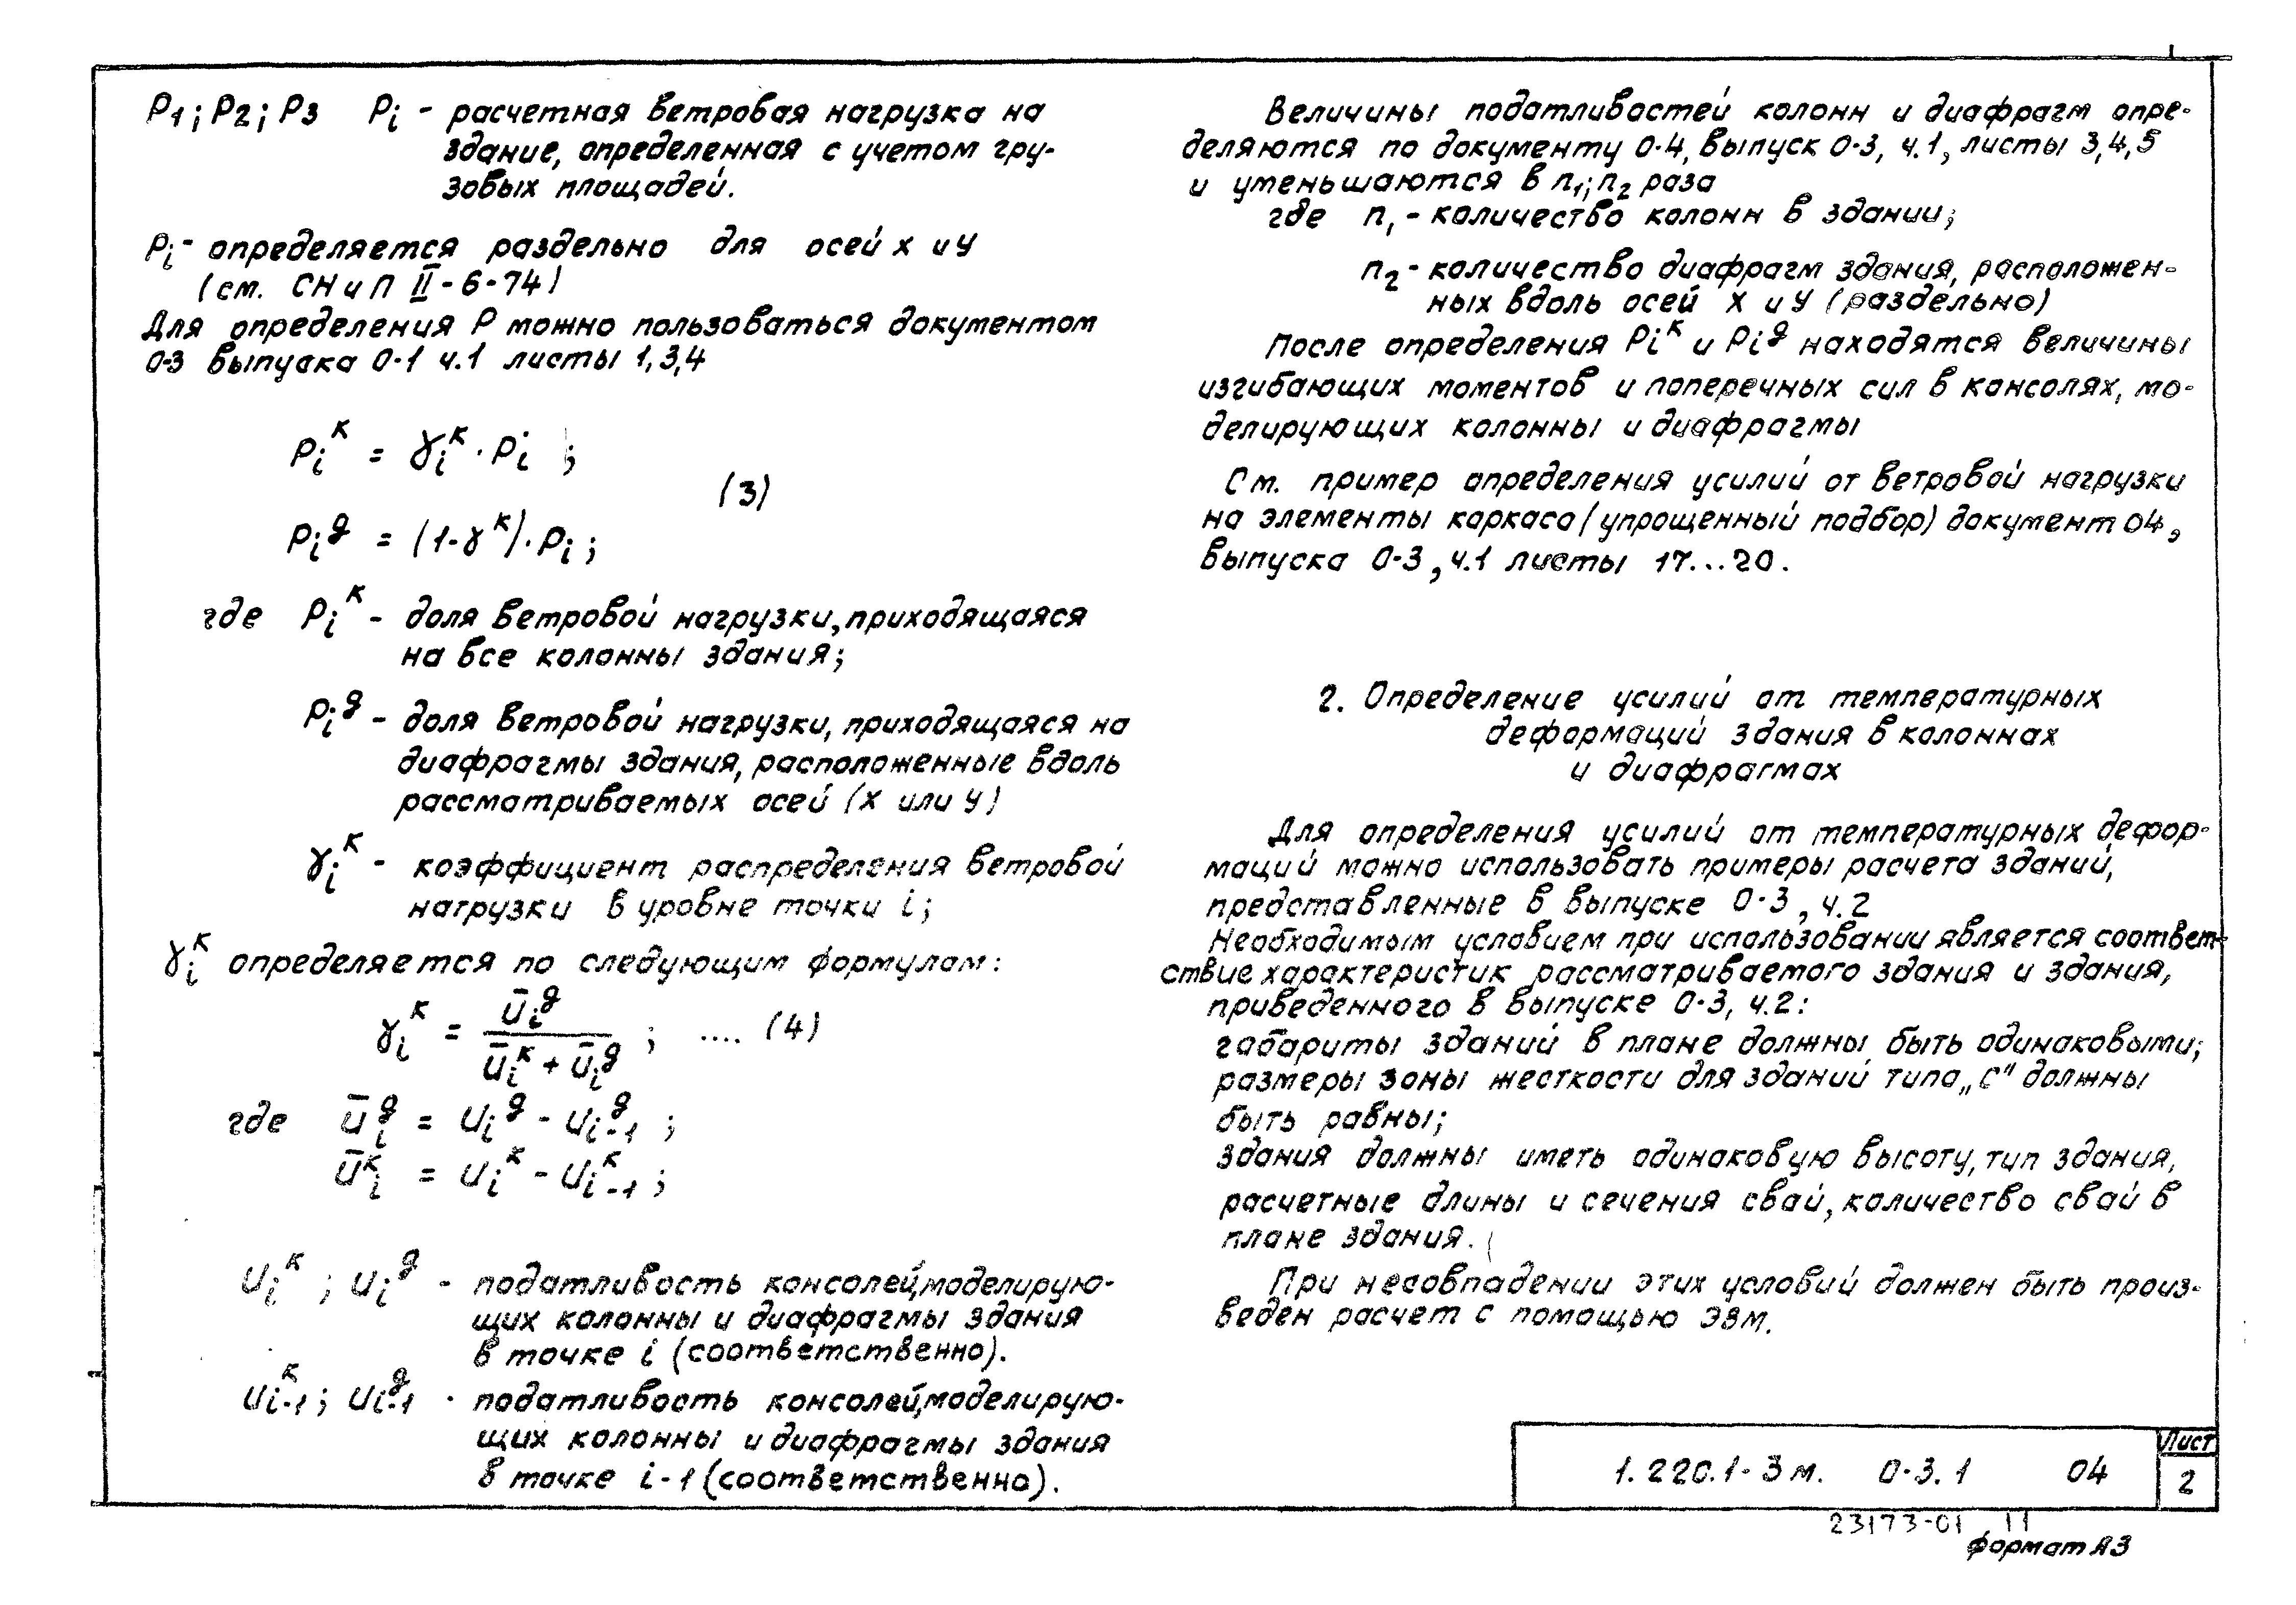 P1; P2; P3 Pi - расчетная ветровая нагрузка на
здание, определенная с учетом гру-
зовых площадей.
Pi - определяется раздельно для осей х и У
(см. СНиП II-6-74)
Для определения Р можно пользоваться документом
0-3 выпуска 0-1 ч.1 листы 1,3,4
Piᴷ = γiᴷ · Pi ;
(3)
Piᵍ = (1-γᴷ) · Pi ;
где Piᴷ - доля ветровой нагрузки, приходящаяся
на все колонны здания;
Piᵍ - доля ветровой нагрузки, приходящаяся на
диафрагмы здания, расположенные вдоль
рассматриваемых осей (х или у)
γiᴷ - коэффициент распределения ветровой
нагрузки в уровне точки i;
γiᴷ определяется по следующим формулам:
γiᴷ = ūiᵍ / (ūiᴷ + ūiᵍ) ; .... (4)
где ūiᵍ = Uiᵍ - Ui-1ᵍ ;
ūiᴷ = Uiᴷ - Ui-1ᴷ ;
Uiᴷ ; Uiᵍ - податливость консолей, моделирую-
щих колонны и диафрагмы здания
в точке i (соответственно).
Ui-1ᴷ ; Ui-1ᵍ - податливость консолей, моделирую-
щих колонны и диафрагмы здания
в точке i-1 (соответственно).
Величины податливостей колонн и диафрагм опре-
деляются по документу 0-4, выпуск 0-3, ч.1, листы 3,4,5
и уменьшаются в n1; n2 раза
где n1 - количество колонн в здании;
n2 - количество диафрагм здания, расположен-
ных вдоль осей Х и У (раздельно)
После определения Piᴷ и Piᵍ находятся величины
изгибающих моментов и поперечных сил в консолях, мо-
делирующих колонны и диафрагмы
См. пример определения усилий от ветровой нагрузки
на элементы каркаса (упрощенный подбор) документ 04,
выпуска 0-3, ч.1 листы 17...20.
2. Определение усилий от температурных
деформаций здания в колоннах
и диафрагмах
Для определения усилий от температурных дефор-
маций можно использовать примеры расчета зданий,
представленные в выпуске 0-3, ч.2
Необходимым условием при использовании является соответ-
ствие характеристик рассматриваемого здания и здания,
приведенного в выпуске 0-3, ч.2:
габариты зданий в плане должны быть одинаковыми;
размеры зоны жесткости для зданий типа „С" должны
быть равны;
здания должны иметь одинаковую высоту, тип здания,
расчетные длины и сечения свай, количество свай в
плане здания.
При несовпадении этих условий должен быть произ-
веден расчет с помощью ЭВМ.
1.220.1-3м. 0-3.1 04
Лист
2
23173-01 11
Формат А3